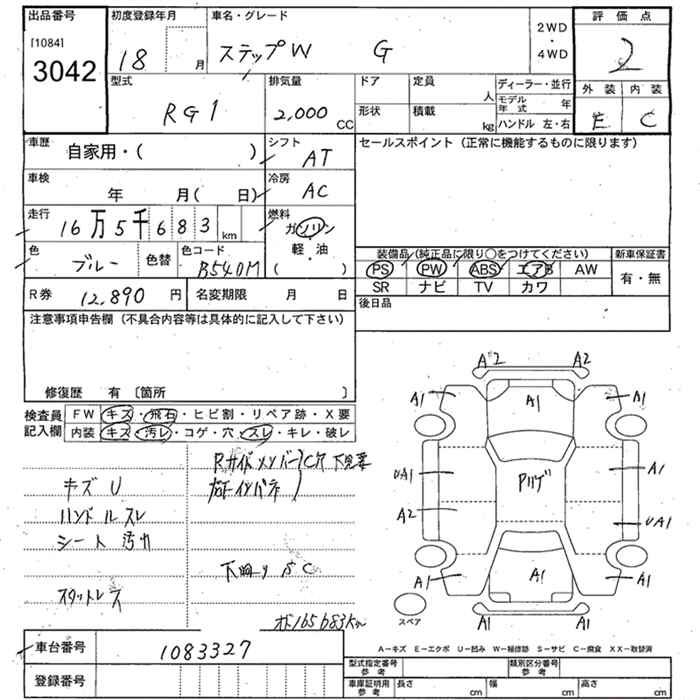 出品番号 初度登録年月 車名・グレード 2WD・4WD 評価点
[1084] 3042 18 月 ステップW G 2
型式 排気量 ドア 定員 人 ディーラー・並行 外装 内装
RG1 2,000 CC 形状 積載 kg モデル年式 年 ハンドル 左・右 E C
車歴 自家用・( ) シフト AT セールスポイント (正常に機能するものに限ります)
車検 年 月( 日) 冷房 AC
走行 16万5千683km 燃料 ガソリン 軽・油 ( )
色 ブルー 色替 色コード B540M
装備品 (純正品に限り○をつけてください) 新車保証書
PS PW ABS エアB AW 有・無
SR ナビ TV カワ
R券 12,890 円 名変期限 月 日 後日品
注意事項申告欄 (不具合内容等は具体的に記入して下さい)
修復歴 有 〔箇所 〕
検査員記入欄 FW キズ・飛石・ヒビ割・リペア跡・X要
内装 キズ・汚レ・コゲ・穴・スレ・キレ・破レ
キズ U
ハンドルスレ
シート汚れ
スタットレス
RサイドメンバーC穴
下廻り C
165683km
A2 A2
A1 A1 A1
UA1 Pルーフ A1
A2 UA1
A1 A1 A1
A1 A1
スペア
A-キズ E-エクボ U-凹み W-補修跡 S-サビ C-腐食 XX-取替済
車台番号 1083327
登録番号
型式指定番号 参考 類別区分番号 参考
車庫証明用 参考 長さ cm 幅 cm 高さ cm